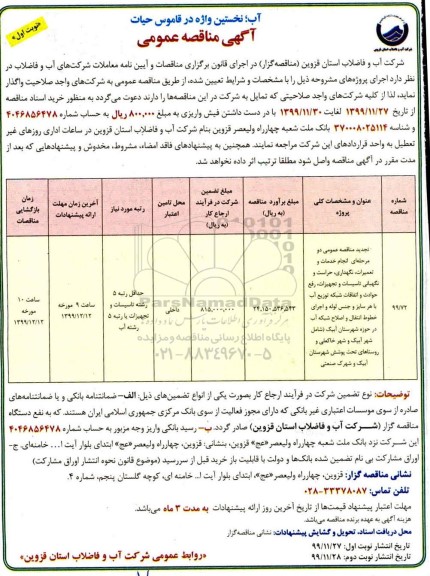 آب؛ نخستین واژه در قاموس حیات
آگهی مناقصه عمومی
«نوبت اول»
شرکت آب و فاضلاب استان قزوین
شرکت آب و فاضلاب استان قزوین (مناقصه‌گزار) در اجرای قانون برگزاری مناقصات و آیین نامه معاملات شرکت‌های آب و فاضلاب در
نظر دارد اجرای پروژه‌های مشروحه ذیل را با مشخصات و شرایط تعیین شده، از طریق مناقصه عمومی به شرکت‌های واجد صلاحیت واگذار
نماید، لذا از کلیه شرکت‌های واجد صلاحیتی که تمایل به شرکت در این مناقصه‌ها را دارند دعوت می‌گردد به منظور خرید اسناد مناقصه
از تاریخ ۱۳۹۹/۱۱/۲۷ لغایت ۱۳۹۹/۱۱/۳۰ با در دست داشتن فیش واریزی به مبلغ ۸۰۰,۰۰۰ ریال به حساب شماره ۴۰۴۶۸۵۶۴۷۸
و شناسه ۳۷۰۰۰۸۰۲۵۱۱۴ بانک ملت شعبه چهارراه ولیعصر قزوین بنام شرکت آب و فاضلاب استان قزوین در ساعات اداری روزهای غیر
تعطیل به واحد قراردادهای این شرکت مراجعه نمایند. همچنین به پیشنهادهای فاقد امضاء، مشروط، مخدوش و پیشنهادهایی که بعد از
مدت مقرر در آگهی مناقصه واصل شود مطلقا ترتیب اثر داده نخواهد شد.
شماره مناقصه
عنوان و مشخصات کلی پروژه
مبلغ برآورد مناقصه (به ریال)
مبلغ تضمین شرکت در فرآیند ارجاع کار (به ریال)
محل تامین اعتبار
رتبه مورد نیاز
آخرین زمان مهلت ارائه پیشنهادات
زمان بازگشایی مناقصات
۹۹/۷۲
تجدید مناقصه عمومی دو
مرحله‌ای انجام خدمات و
تعمیرات، نگهداری، حراست و
نگهبانی تاسیسات و تجهیزات، رفع
حوادث و اتفاقات شبکه توزیع آب
با هر سایز و جنس لوله و اجرای
خطوط انتقال و اصلاح شبکه آب
در حوزه شهرستان آبیک (شامل
شهر آبیک و شهر خاکعلی و
روستاهای تحت پوشش شهرستان
آبیک و شهرک صنعتی
۲۴,۱۵۰,۵۳۶,۵۴۳
۸۱۵,۰۰۰,۰۰۰
داخلی
حداقل رتبه ۵
رشته تاسیسات و
تجهیزات یا رتبه ۵
رشته آب
ساعت ۹ مورخه
۱۳۹۹/۱۲/۱۲
ساعت ۱۰
مورخه
۱۳۹۹/۱۲/۱۲
ParsNamadData
۰۲۱-۸۸۳۴۹۶۷۰-۵
توضیحات: نوع تضمین شرکت در فرآیند ارجاع کار بصورت یکی از انواع تضمین‌های ذیل: الف- ضمانتنامه بانکی و یا ضمانتنامه‌های
صادره از سوی موسسات اعتباری غیر بانکی که دارای مجوز فعالیت از سوی بانک مرکزی جمهوری اسلامی ایران هستند. که به نفع دستگاه
مناقصه گزار (شرکت آب و فاضلاب استان قزوین) صادر گردد. ب- رسید بانکی واریز وجه مزبور به حساب شماره ۴۰۴۶۸۵۶۴۷۸
این شرکت نزد بانک ملت شعبه چهارراه ولیعصر«عج» قزوین، بنشانی: قزوین، چهارراه ولیعصر(عج) ابتدای بلوار آیت ا... خامنه‌ای. ج-
اوراق مشارکت بی نام تضمین شده بانک‌ها و دولت با قابلیت باز خرید قبل از سررسید (موضوع قانون نحوه انتشار اوراق مشارکت)
نشانی مناقصه گزار: قزوین، چهارراه ولیعصر«عج»، ابتدای بلوار آیت ا.. خامنه ای، کوچه گلستان پنجم، شماره ۴.
تلفن تماس: ۳۳۳۷۸۰۸۷-۰۲۸
مهلت اعتبار پیشنهاد قیمت‌ها از تاریخ آخرین روز ارائه پیشنهادات به مدت ۳ ماه می‌باشد.
هزینه آگهی به عهده برنده مناقصه می‌باشد.
محل دریافت اسناد، تحویل و گشایش پیشنهادات: نشانی مناقصه‌گزار
تاریخ انتشار نوبت اول: ۹۹/۱۱/۲۷
تاریخ انتشار نوبت دوم: ۹۹/۱۱/۲۸
«روابط عمومی شرکت آب و فاضلاب استان قزوین»